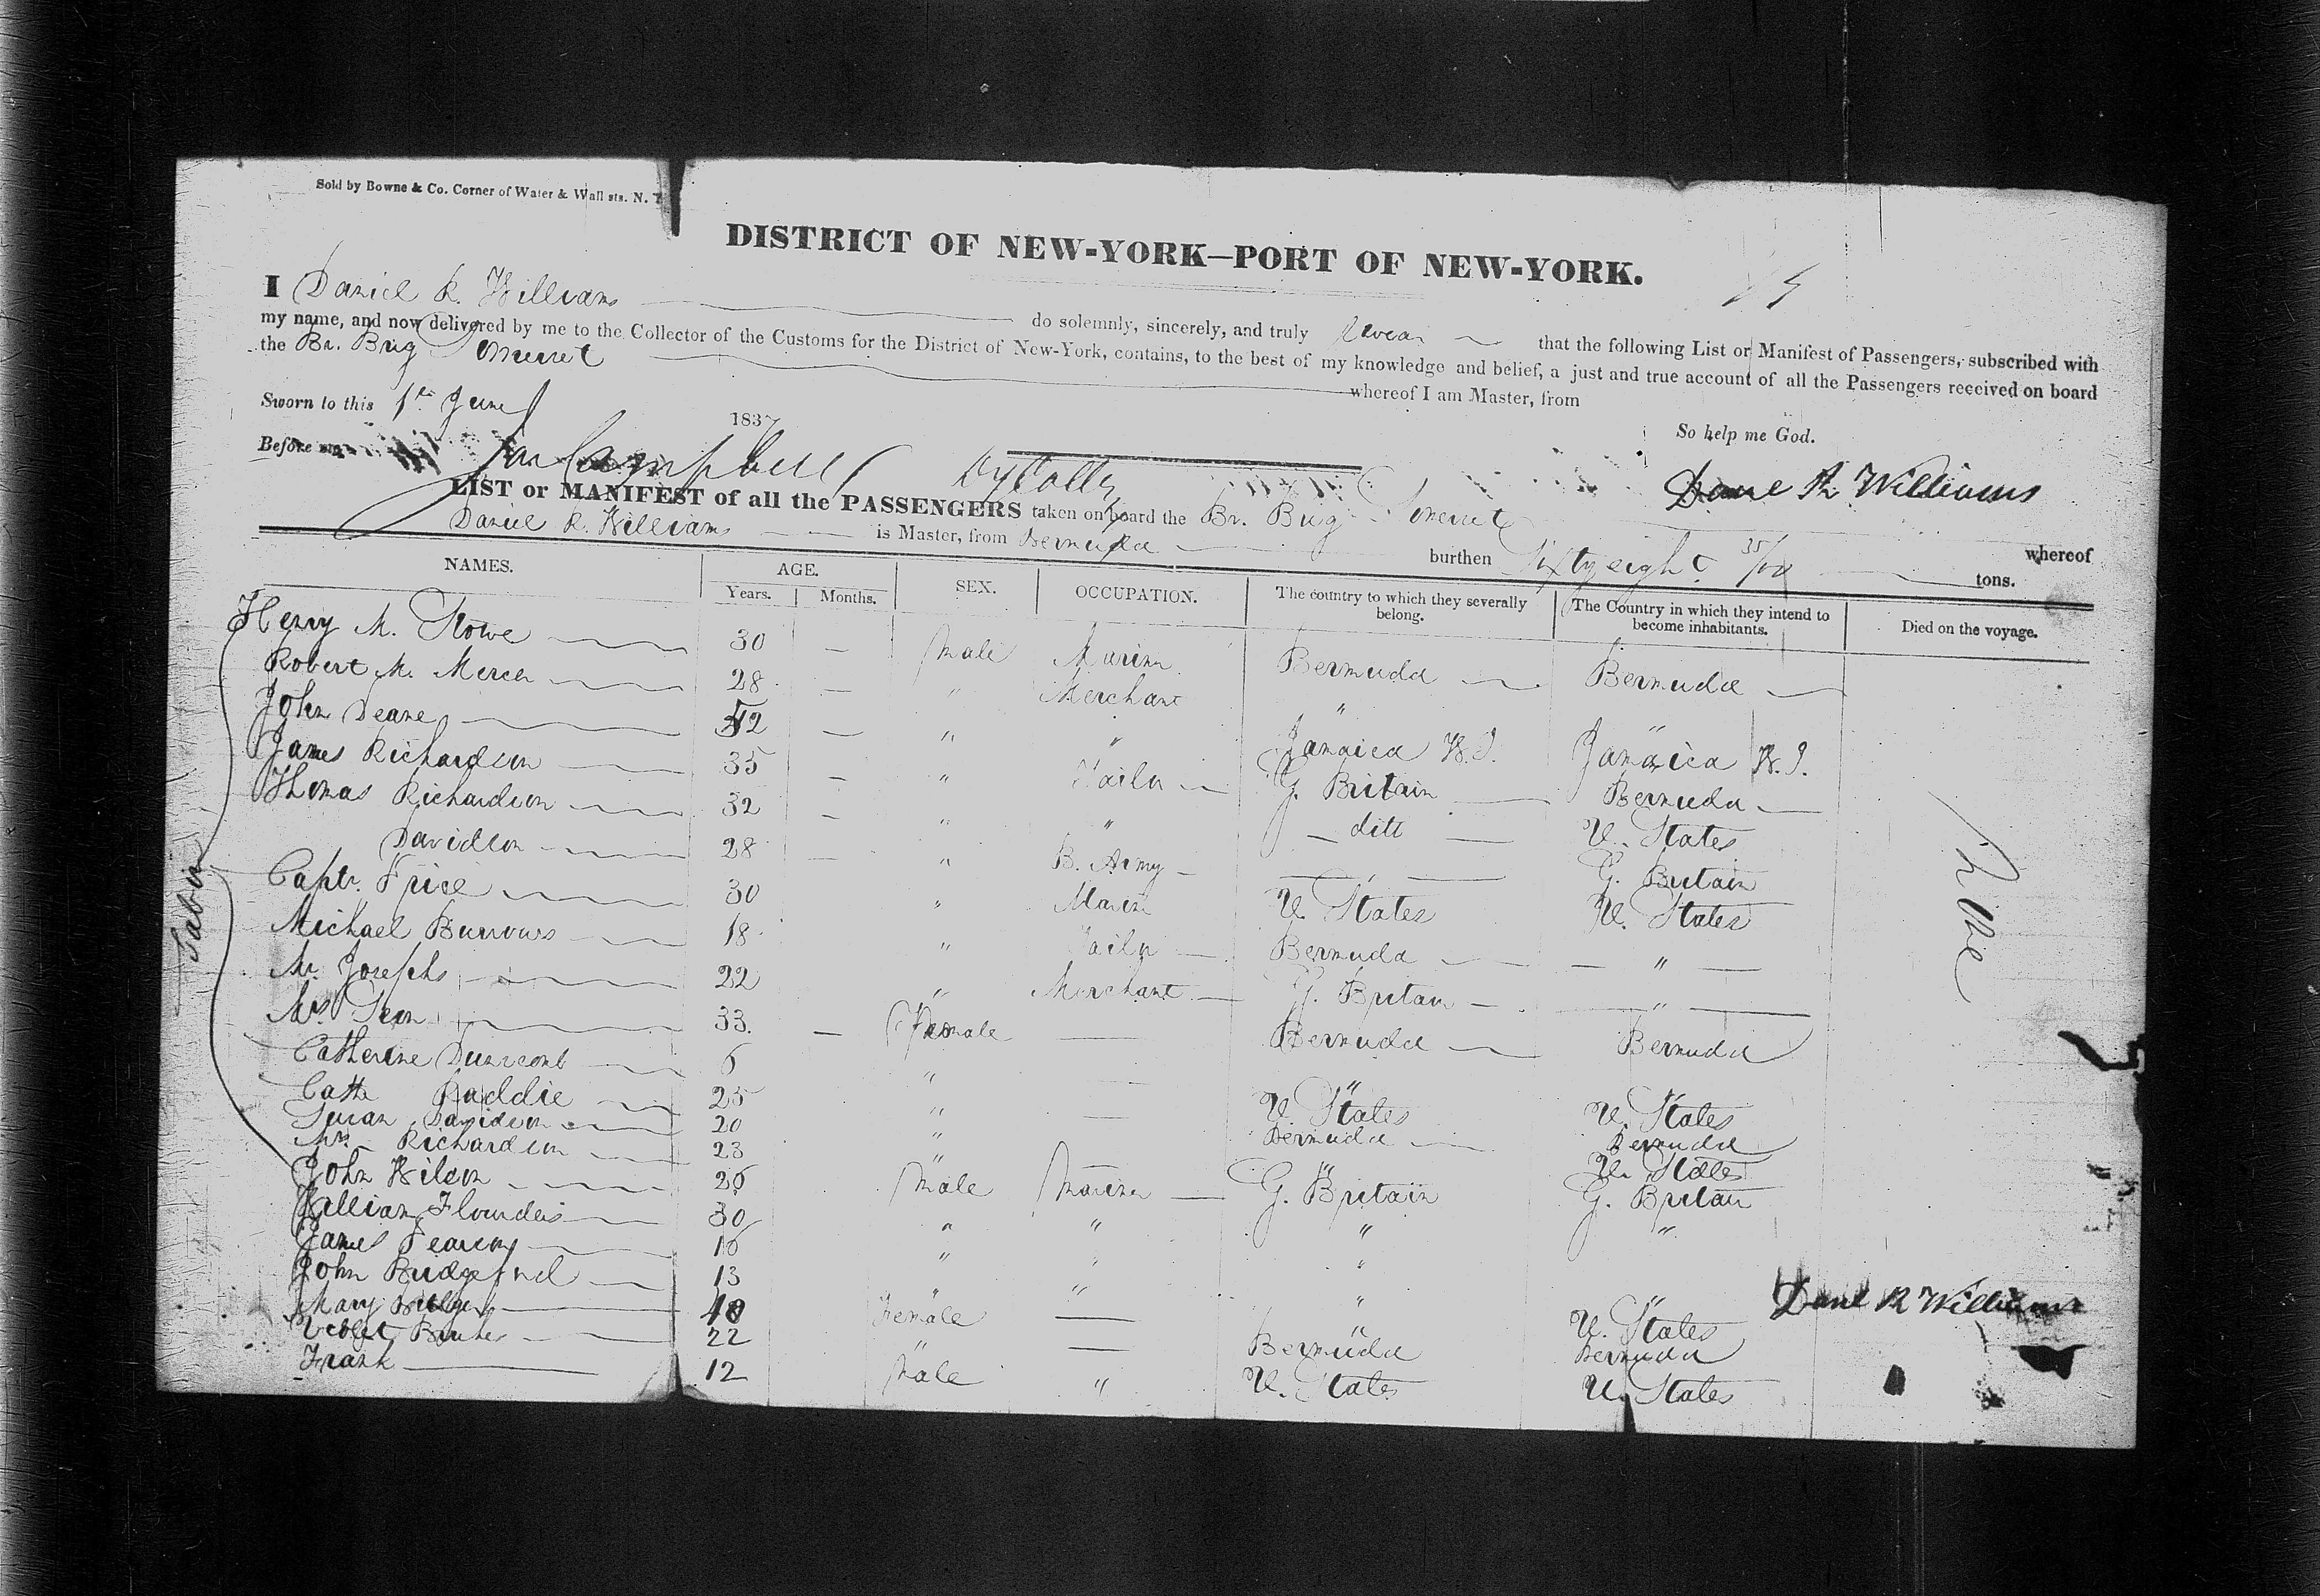 Sold by Bowne & Co. Corner of Water & Wall sts. N. Y
DISTRICT OF NEW-YORK—PORT OF NEW-YORK.
I Daniel R. Williams do solemnly, sincerely, and truly swear that the following List or Manifest of Passengers, subscribed with
my name, and now delivered by me to the Collector of the Customs for the District of New-York, contains, to the best of my knowledge and belief, a just and true account of all the Passengers received on board
the Br. Brig Somerset whereof I am Master, from
Sworn to this 1st June 1837
So help me God.
Before Campbell DyColltr
Danl R. Williams
LIST or MANIFEST of all the PASSENGERS taken on board the Br. Brig Somerset whereof
Daniel R. Williams is Master, from Bermuda burthen Sixty eight 35/100 tons.
NAMES. AGE. Years. Months. SEX. OCCUPATION. The country to which they severally belong. The Country in which they intend to become inhabitants. Died on the voyage.
Henry M. Stowe 30 — Male Marine Bermuda Bermuda
Robert M. Mercer 28 — " Merchant " "
John Deane 42 — " " Jamaica W. I. Jamaica W. I.
James Richardson 35 — " Sailor G. Britain Bermuda
Thomas Richardson 32 — " " ditt U. States
Davidson 28 — " B. Army " G. Britain
Captn. Price 30 " Marin U. States U. States
Michael Burrows 18 " Sailor Bermuda "
Mr. Josephs 22 " Merchant G. Britain "
Mrs. 33 — Female — Bermuda Bermuda
Catherine Dunscomb 6 " — " "
Cath Raddie 25 " — U. States U. States
Susan Davidson 20 " Bermuda Bermuda
Mrs. Richardson 23 " — " U. States
John Wilson 26 Male Marine G. Britain G. Britain
William Flounders 30 " " " "
James 16 " " "
John Bridgford 13 " " " "
Mary 40 Female — " U. States
Violet 22 " — Bermuda Bermuda
Frank 12 Male " U. States U. States
Cabin
None
Danl R Williams